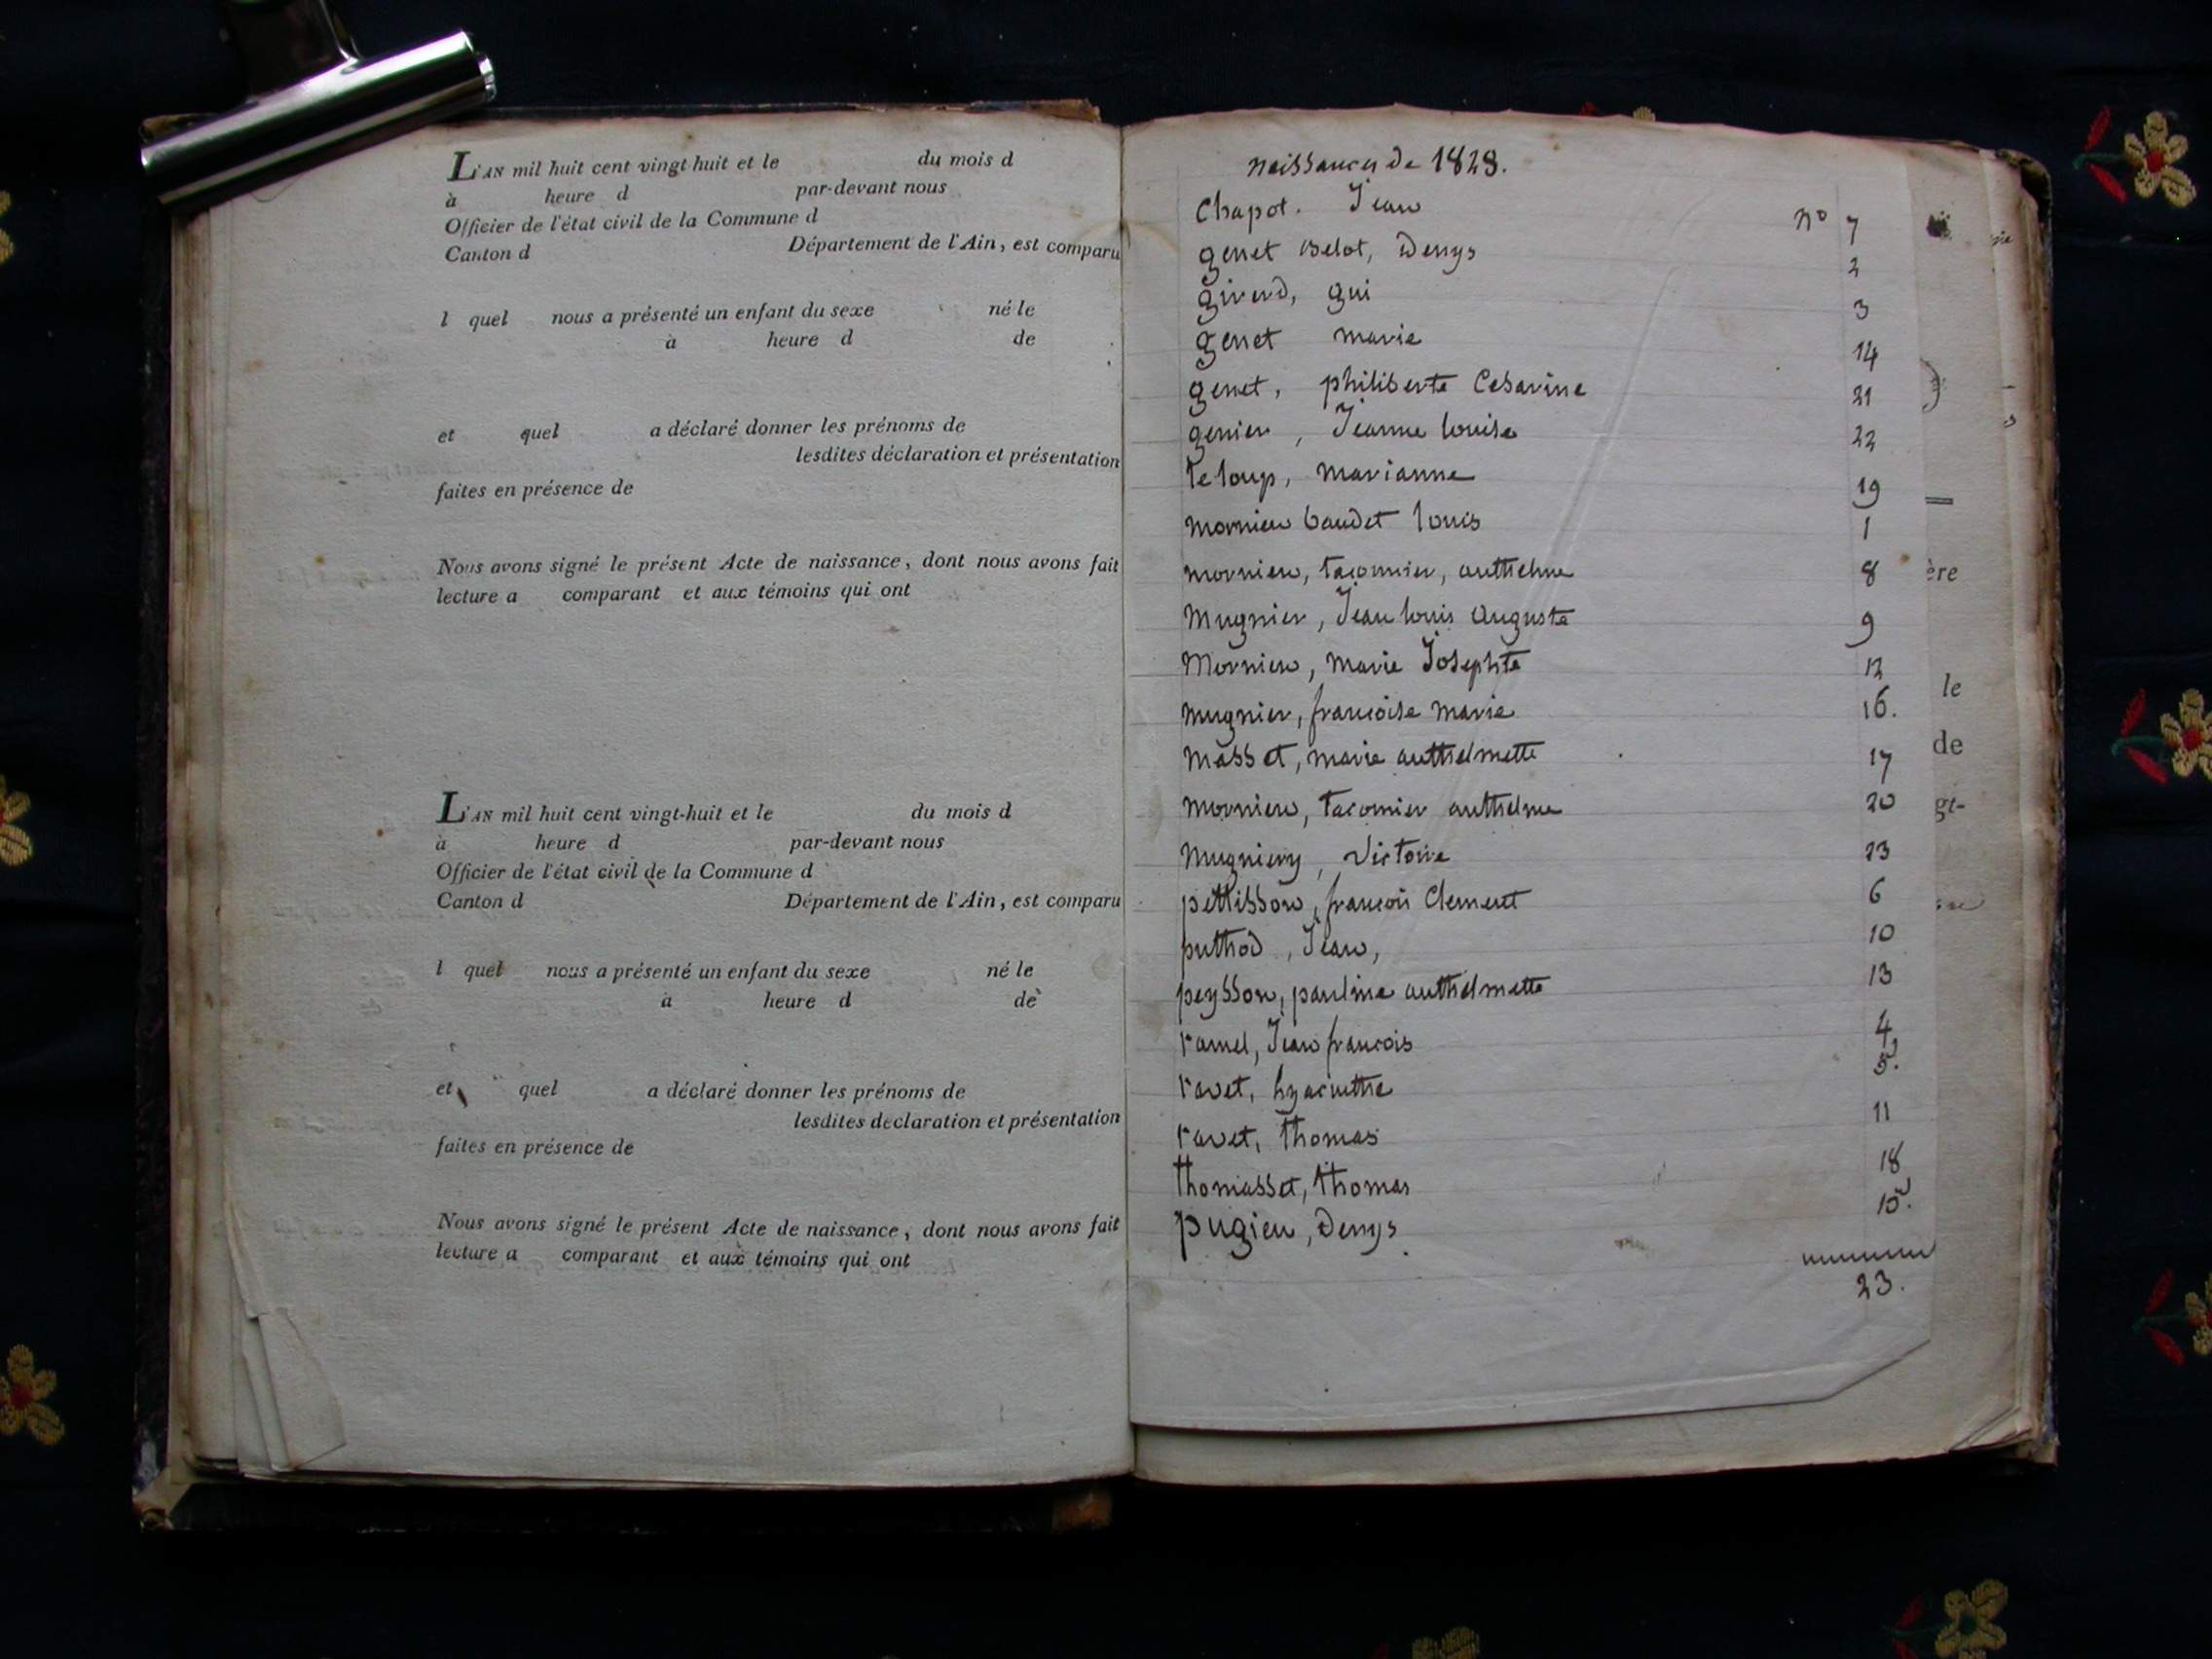 L'AN mil huit cent vingt huit et le du mois d
à heure d par-devant nous
Officier de l'état civil de la Commune d
Canton d Département de l'Ain, est comparu
l quel nous a présenté un enfant du sexe né le
à heure d de
et quel a déclaré donner les prénoms de
lesdites déclaration et présentation
faites en présence de
Nous avons signé le présent Acte de naissance, dont nous avons fait
lecture a comparant et aux témoins qui ont
L'AN mil huit cent vingt-huit et le du mois d
à heure d par-devant nous
Officier de l'état civil de la Commune d
Canton d Département de l'Ain, est comparu
l quel nous a présenté un enfant du sexe né le
à heure d de
et quel a déclaré donner les prénoms de
lesdites declaration et présentation
faites en présence de
Nous avons signé le présent Acte de naissance, dont nous avons fait
lecture a comparant et aux témoins qui ont
Naissances de 1828.
Chapot. Jean n° 7
genet belot, Denys 2
girerd, gui 3
genet marie 14
genet, philiberte Cesarine 21
genier, Jeanne louise 22
teloup, marianne 19
mornieu baudet louis 1
mornieu, tacomier, anthelme 8
Mugnier, Jean louis auguste 9
Mornieu, marie Josephte 12
mugnier, francoise marie 16.
masset, marie anthelmette 17
mornieu, tacomier anthelme 20
Mugniery, Victoire 23
pettisson, francois Clement 6
puthod, Jean, 10
peysson, pauline anthelmette 13
ramel, Jean francois 4
ravet, hyacinthe 5.
ravet, thomas 11
thomasset, thomas 18
pugieu, Denys 15.
23.
ère
le
de
gi-